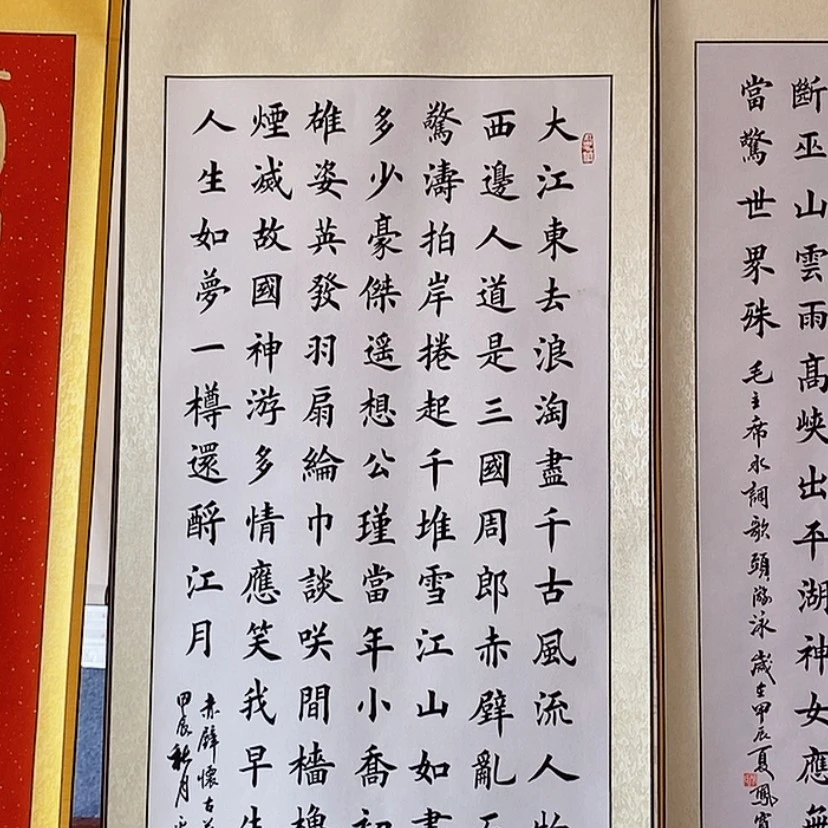 斷巫山雲雨髙峡出平湖神女應無
當驚世界殊
毛主席水調歌頭游泳歲在甲辰夏鳳
大江東去浪淘盡千古風流人物
西邊人道是三國周郎赤壁亂石
驚濤拍岸捲起千堆雪江山如畫
多少豪傑遥想公瑾當年小喬初
雄姿英發羽扇綸巾談咲間檣櫓
煙滅故國神游多情應笑我早生
人生如夢一樽還酹江月
赤壁懷古
甲辰秋月